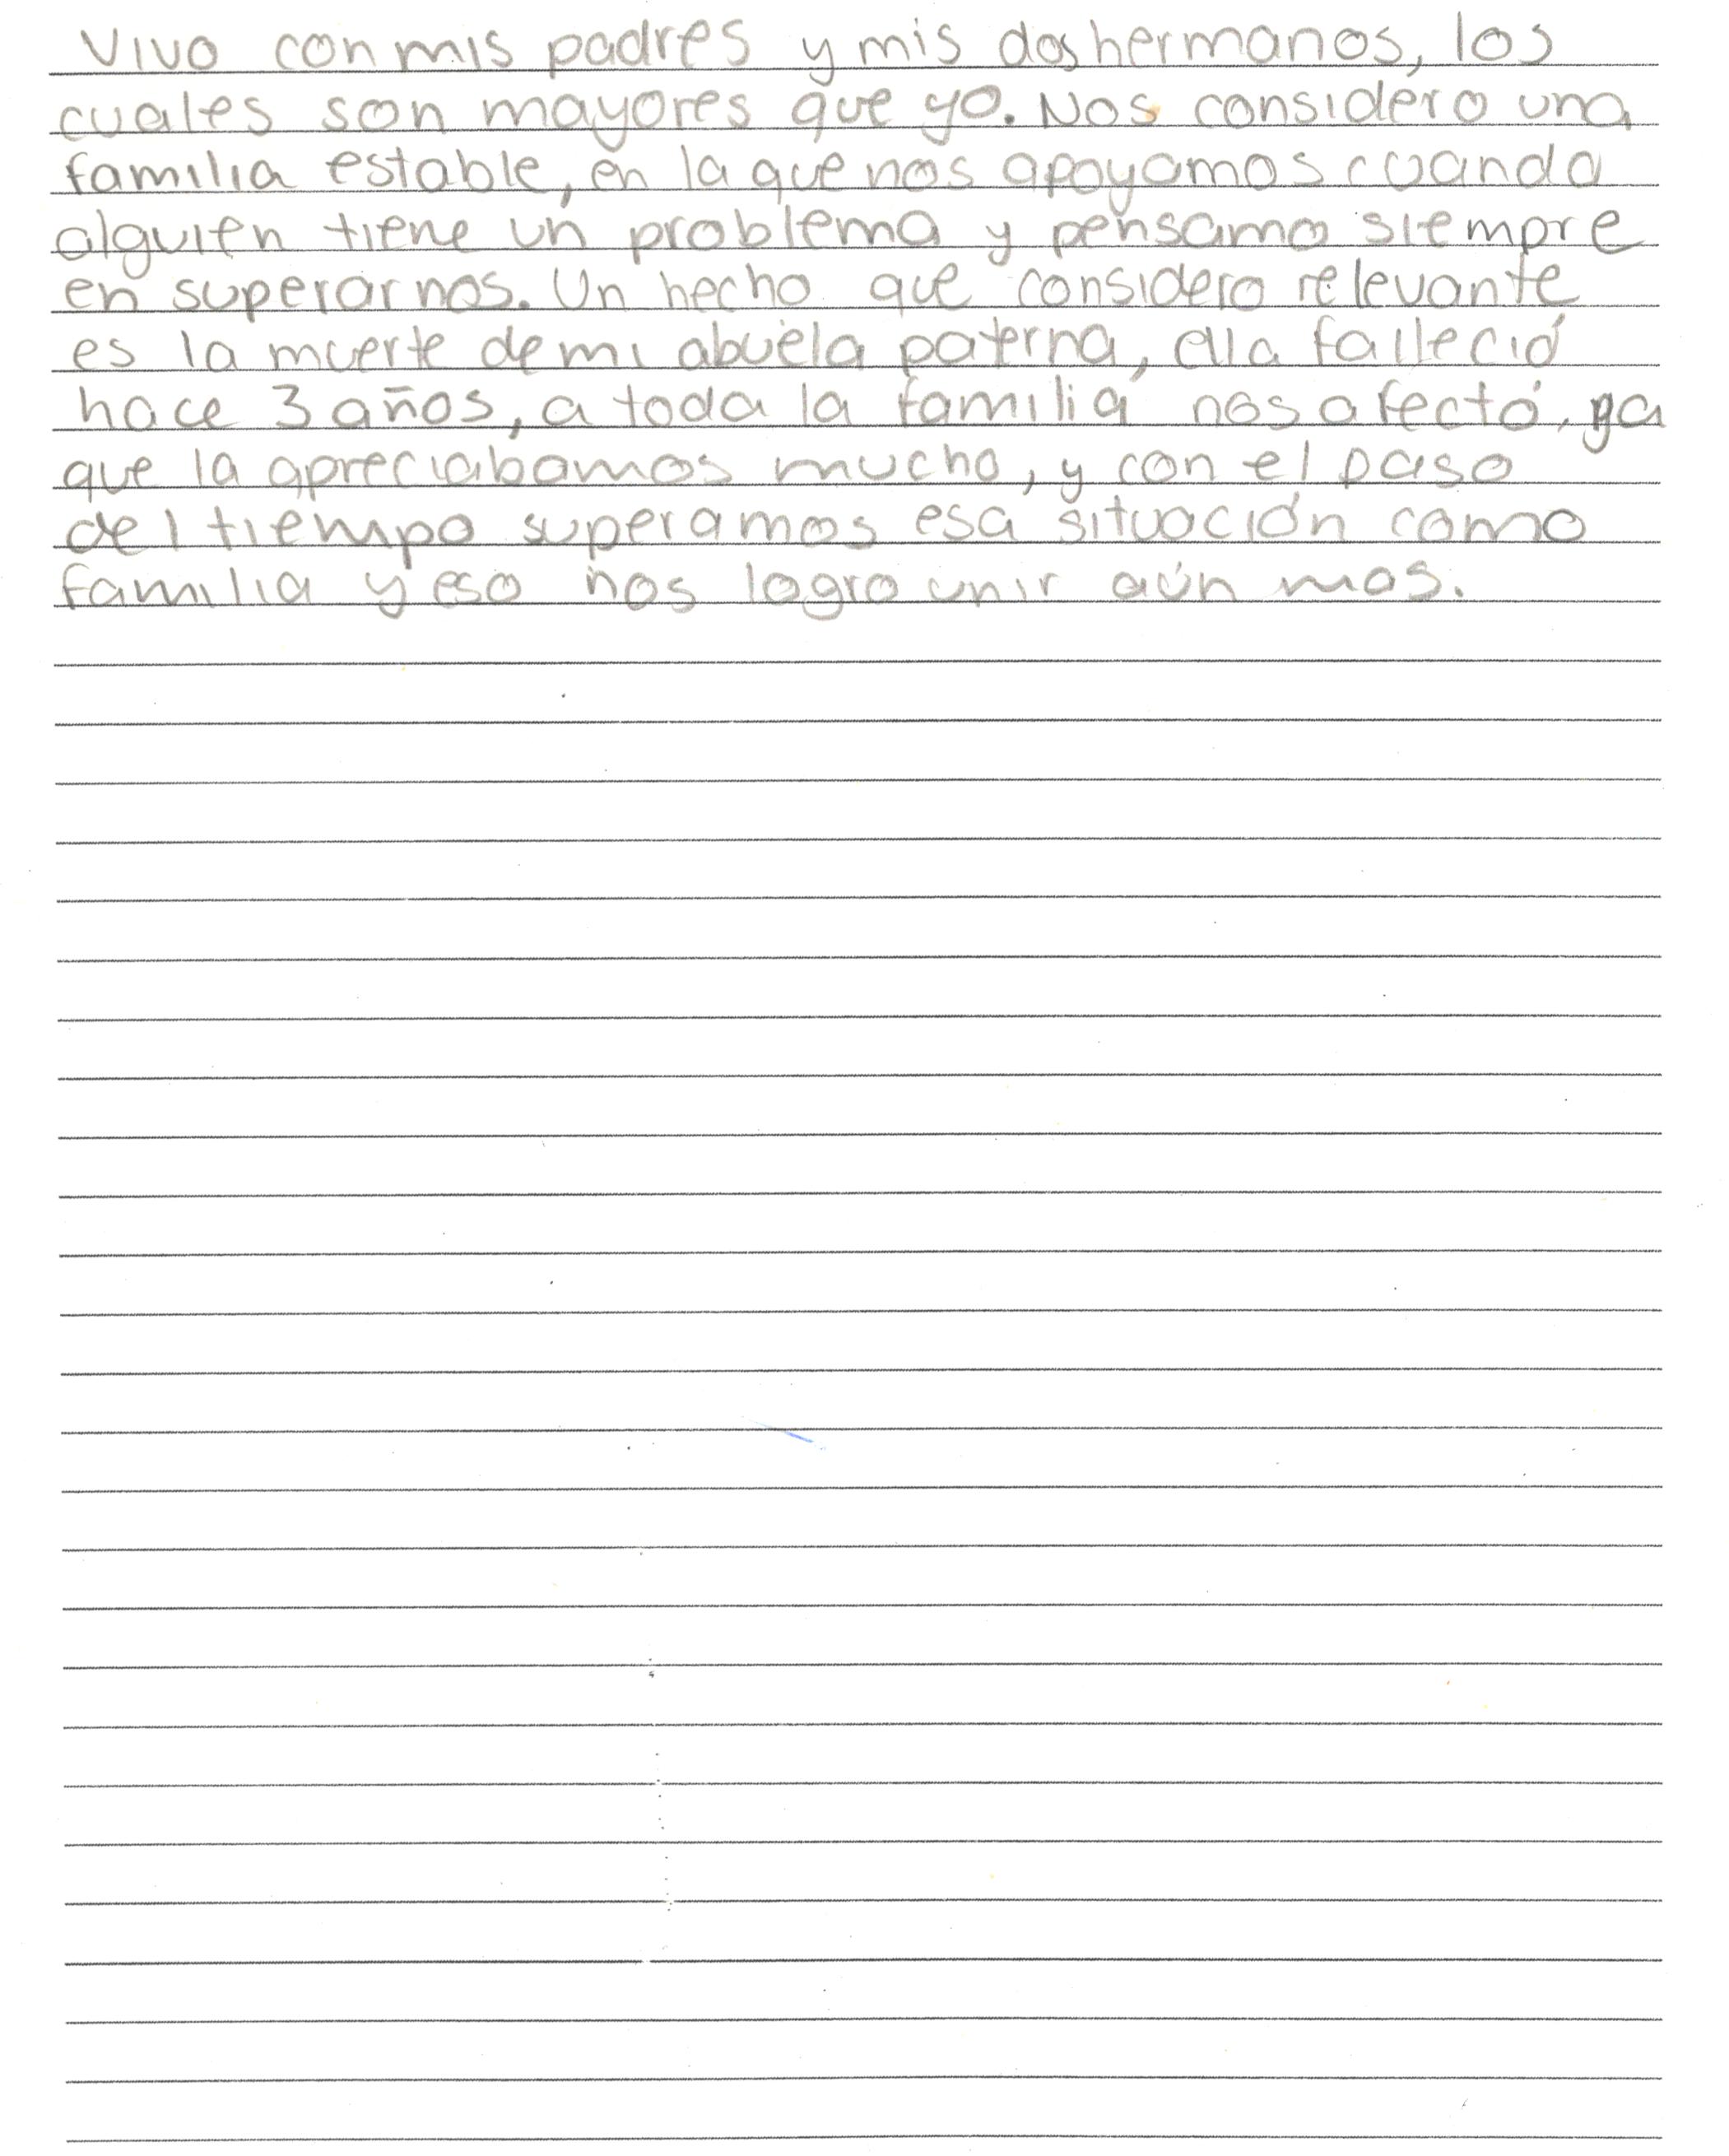 Vivo con mis padres y mis dos hermanos, los
cuales son mayores que yo. Nos considero una
familia estable, en la que nos apoyamos cuando
alguien tiene un problema y pensamo siempre
en superarnos. Un hecho que considero relevante
es la muerte de mi abuela paterna, ella falleció
hace 3 años, a toda la familia nos afectó, ya
que la apreciabamos mucho, y con el paso
del tiempo superamos esa situación como
familia y eso nos logro unir aún mas.